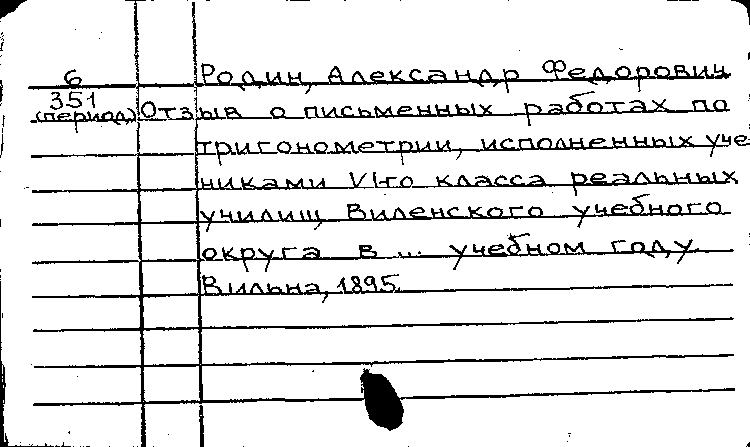 6 Родин, Александр Федорович
351
(период) Отзыв о письменных работах по
тригонометрии, исполненных уче
никами VI-го класса реальных
училищ Виленского учебного
округа в ... учебном году.
Вильна, 1895.